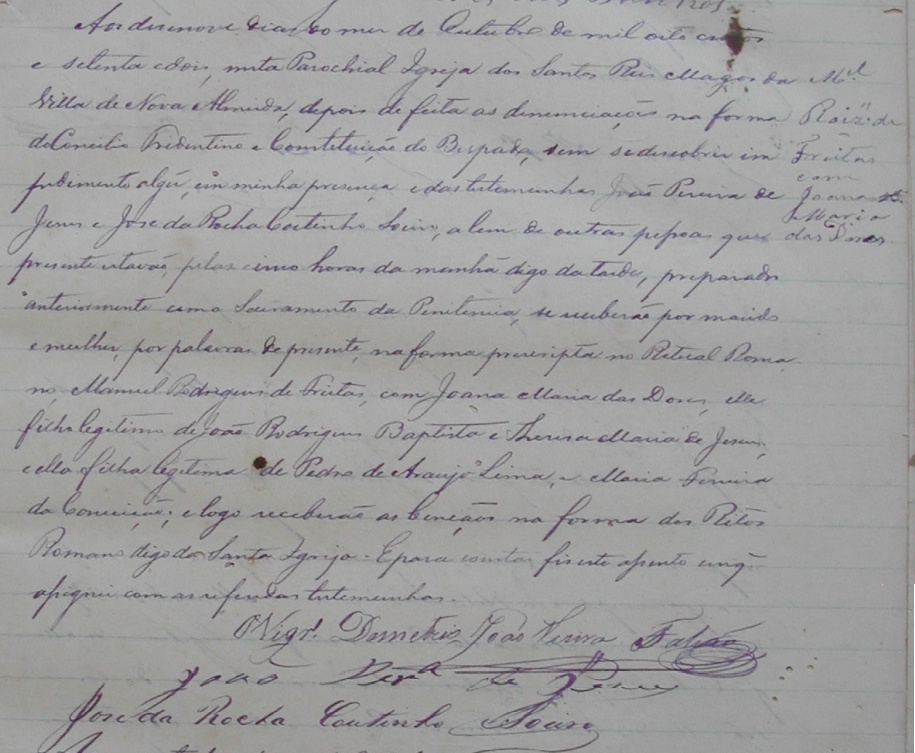 Aos desenove dias do mez de Outubro de mil oito centos
e setenta e dois, nesta Parochial Igreja dos Santos Reis Magos da
Villa de Nova Almeida, depois de feita as denunciações na forma
do Concilio Tredentino e Constituição do Bispado, sem se descobrir im
pedimento algũ, em minha presença e das testemunhas João Pereira de
Jesus e Jose da Rocha Coutinho Soeiro, alem de outras pessoas que
presente estavão, pelas cinco horas da manhã digo da tarde, preparados
anteriormente com o Sacramento da Penitencia, se receberão por marido
e mulher, por palavras de presente, na forma prescripta no Ritual Roma
no Manuel Rodrigues de Freitas, com Joana Maria das Dores, elle
filho legitimo de João Rodrigues Baptista e Theresa Maria de Jesus,
e ella filha legitima de Pedro de Araujo Lima, e Maria Ferreira
da Conceição; e logo receberão as bençãos na forma dos Ritos
Romano digo da Santa Igreja. E para constar fis este assento em q̃
assignei com as referidas testemunhas.
O Vigr.º Demetrio João Vieira Falcão
João Per.ª de Jesus
Jose da Rocha Coutinho Soeiro
M.el
Roiz" de
Freitas
com
Joana
Maria
das Dores